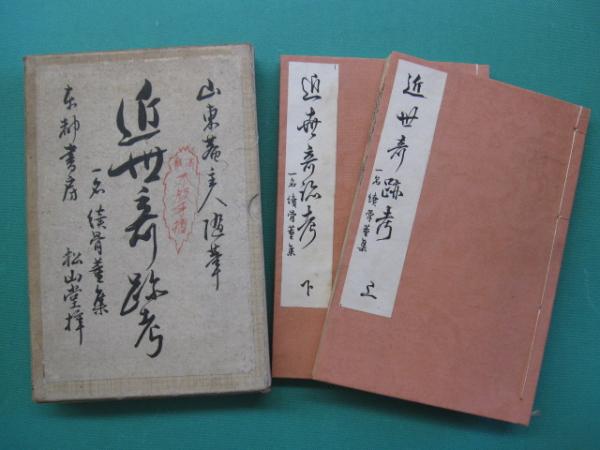 山東菴主人随筆
近世奇跡考
一名続骨董集
東都書房
松山堂梓
近世奇跡考
一名続骨董集
下
近世奇跡考
一名続骨董集
上